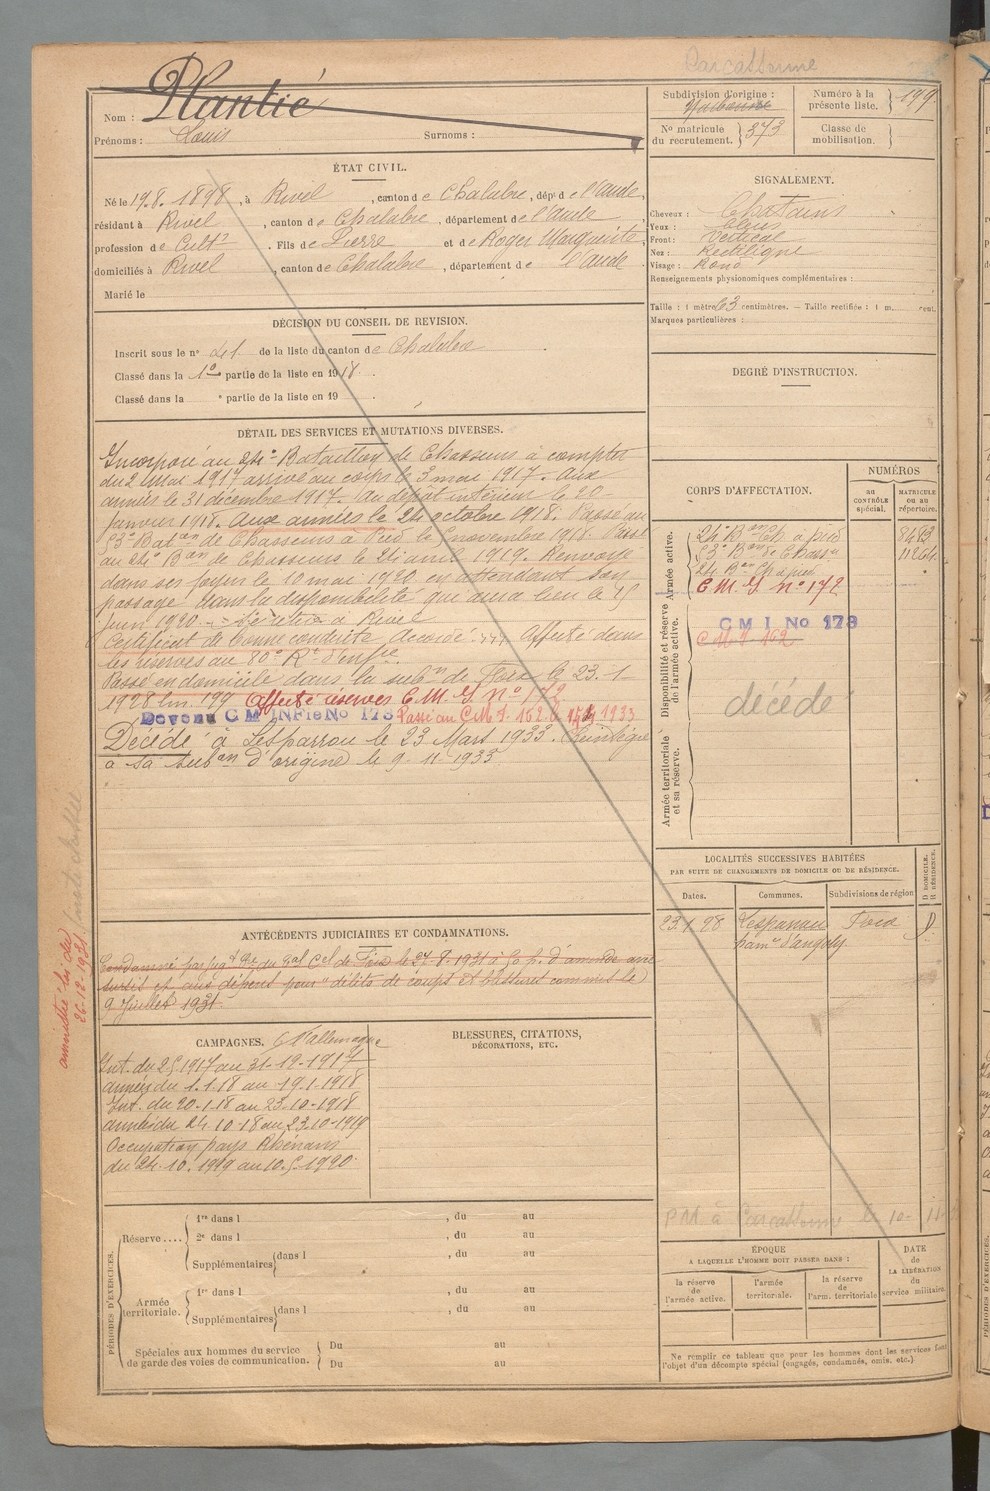 Carcassonne
Nom : Plantié
Prénoms : Louis Surnoms :
Subdivision d'origine : Narbonne
Numéro à la présente liste. 199
Nº matricule du recrutement. 373
Classe de mobilisation.
ÉTAT CIVIL.
Né le 19.8.1898, à Rivel, canton de Chalabre, dépt de l'Aude,
résidant à Rivel, canton de Chalabre, département de l'Aude
profession de Cultr. Fils de Pierre et de Roger Marguerite
domiciliés à Rivel, canton de Chalabre, département de l'Aude
Marié le
SIGNALEMENT.
Cheveux : Chatains
Yeux : bleus
Front : Vertical
Nez : Rectiligne
Visage : Rond
Renseignements physionomiques complémentaires :
Taille : 1 mètre 63 centimètres. — Taille rectifiée : 1 m. cent.
Marques particulières :
DÉCISION DU CONSEIL DE REVISION.
Inscrit sous le nº 41 de la liste du canton de Chalabre
Classé dans la 1e partie de la liste en 1918.
Classé dans la e partie de la liste en 19
DEGRÉ D'INSTRUCTION.
DÉTAIL DES SERVICES ET MUTATIONS DIVERSES.
Incorporé au 24e Bataillon de Chasseurs à compter
du 2 mai 1917 arrivé au corps le 3 mai 1917. Aux
armées le 31 décembre 1917. Au dépôt intérieur le 20
janvier 1918. Aux armées le 24 octobre 1918. Passé au
53e Baton de Chasseurs à Pied le novembre 1918. Passé
au 24e Bon de Chasseurs le 24 avril 1919. Renvoyé
dans ses foyers le 10 mai 1920 en attendant son
passage dans la disponibilité qui aura lieu le 15
juin 1920. Se retire à Rivel
Certificat de bonne conduite accordé. Affecté dans
les réserves au 80e Rt d'Infie.
Passé en domicile dans la subon de Foix le 23.1
1928 lm. 199 Affecté réserves C.M.I. Nº 172
Devenu C M INFie No 178 Passé au C.M.I. 162 1933
Décédé à Lesparrou le 23 Mars 1933. Réintégré
à sa subon d'origine le 9-11-1933
CORPS D'AFFECTATION.
NUMÉROS
au CONTRÔLE spécial.
MATRICULE ou au répertoire.
Armée active.
24e Bon Ch. à pied 8483
53e Bon de Chassrs 11264
24 Bon Ch à pied
C.M.I. Nº 172
Disponibilité et réserve de l'armée active.
C M I No 178
C M I 162
décédé
Armée territoriale et sa réserve.
LOCALITÉS SUCCESSIVES HABITÉES
PAR SUITE DE CHANGEMENTS DE DOMICILE OU DE RÉSIDENCE.
Dates. Communes. Subdivisions de région D DOMICILE. R RÉSIDENCE.
23.1.28 Lesparrou Foix D
ham. d'angely
PM à Carcassonne le 10-11-
ANTÉCÉDENTS JUDICIAIRES ET CONDAMNATIONS.
Condamné par jugt de du bal Cel de Foix le 27-8-1931 à 50 f. d'amende avec
sursis et aux dépens pour "délits de coups et blessures commis le
9 Juillet 1931.
amnistié loi du
26-12-1931
CAMPAGNES. C. l'allemagne
Int. du 2.5.1917 au 31-12-1917
armées du 1.1.18 au 19.1.1918
Int. du 20-1-18 au 23-10-1918
armées du 24.10-18 au 23.10-1919
Occupation pays Rhénans
du 24.10.1919 au 10.5.1920
BLESSURES, CITATIONS,
DÉCORATIONS, ETC.
PÉRIODES D'EXERCICES.
Réserve....
1re dans l , du au
2e dans l , du au
Supplémentaires dans l , du au
Armée territoriale.
1re dans l , du au
Supplémentaires dans l , du au
Spéciales aux hommes du service de garde des voies de communication.
Du au
Du au
ÉPOQUE
A LAQUELLE L'HOMME DOIT PASSER DANS :
la réserve de l'armée active.
l'armée territoriale.
la réserve de l'arm. territoriale
DATE de LA LIBÉRATION du service militaire.
Ne remplir ce tableau que pour les hommes dont les services font
l'objet d'un décompte spécial (engagés, condamnés, omis, etc.)